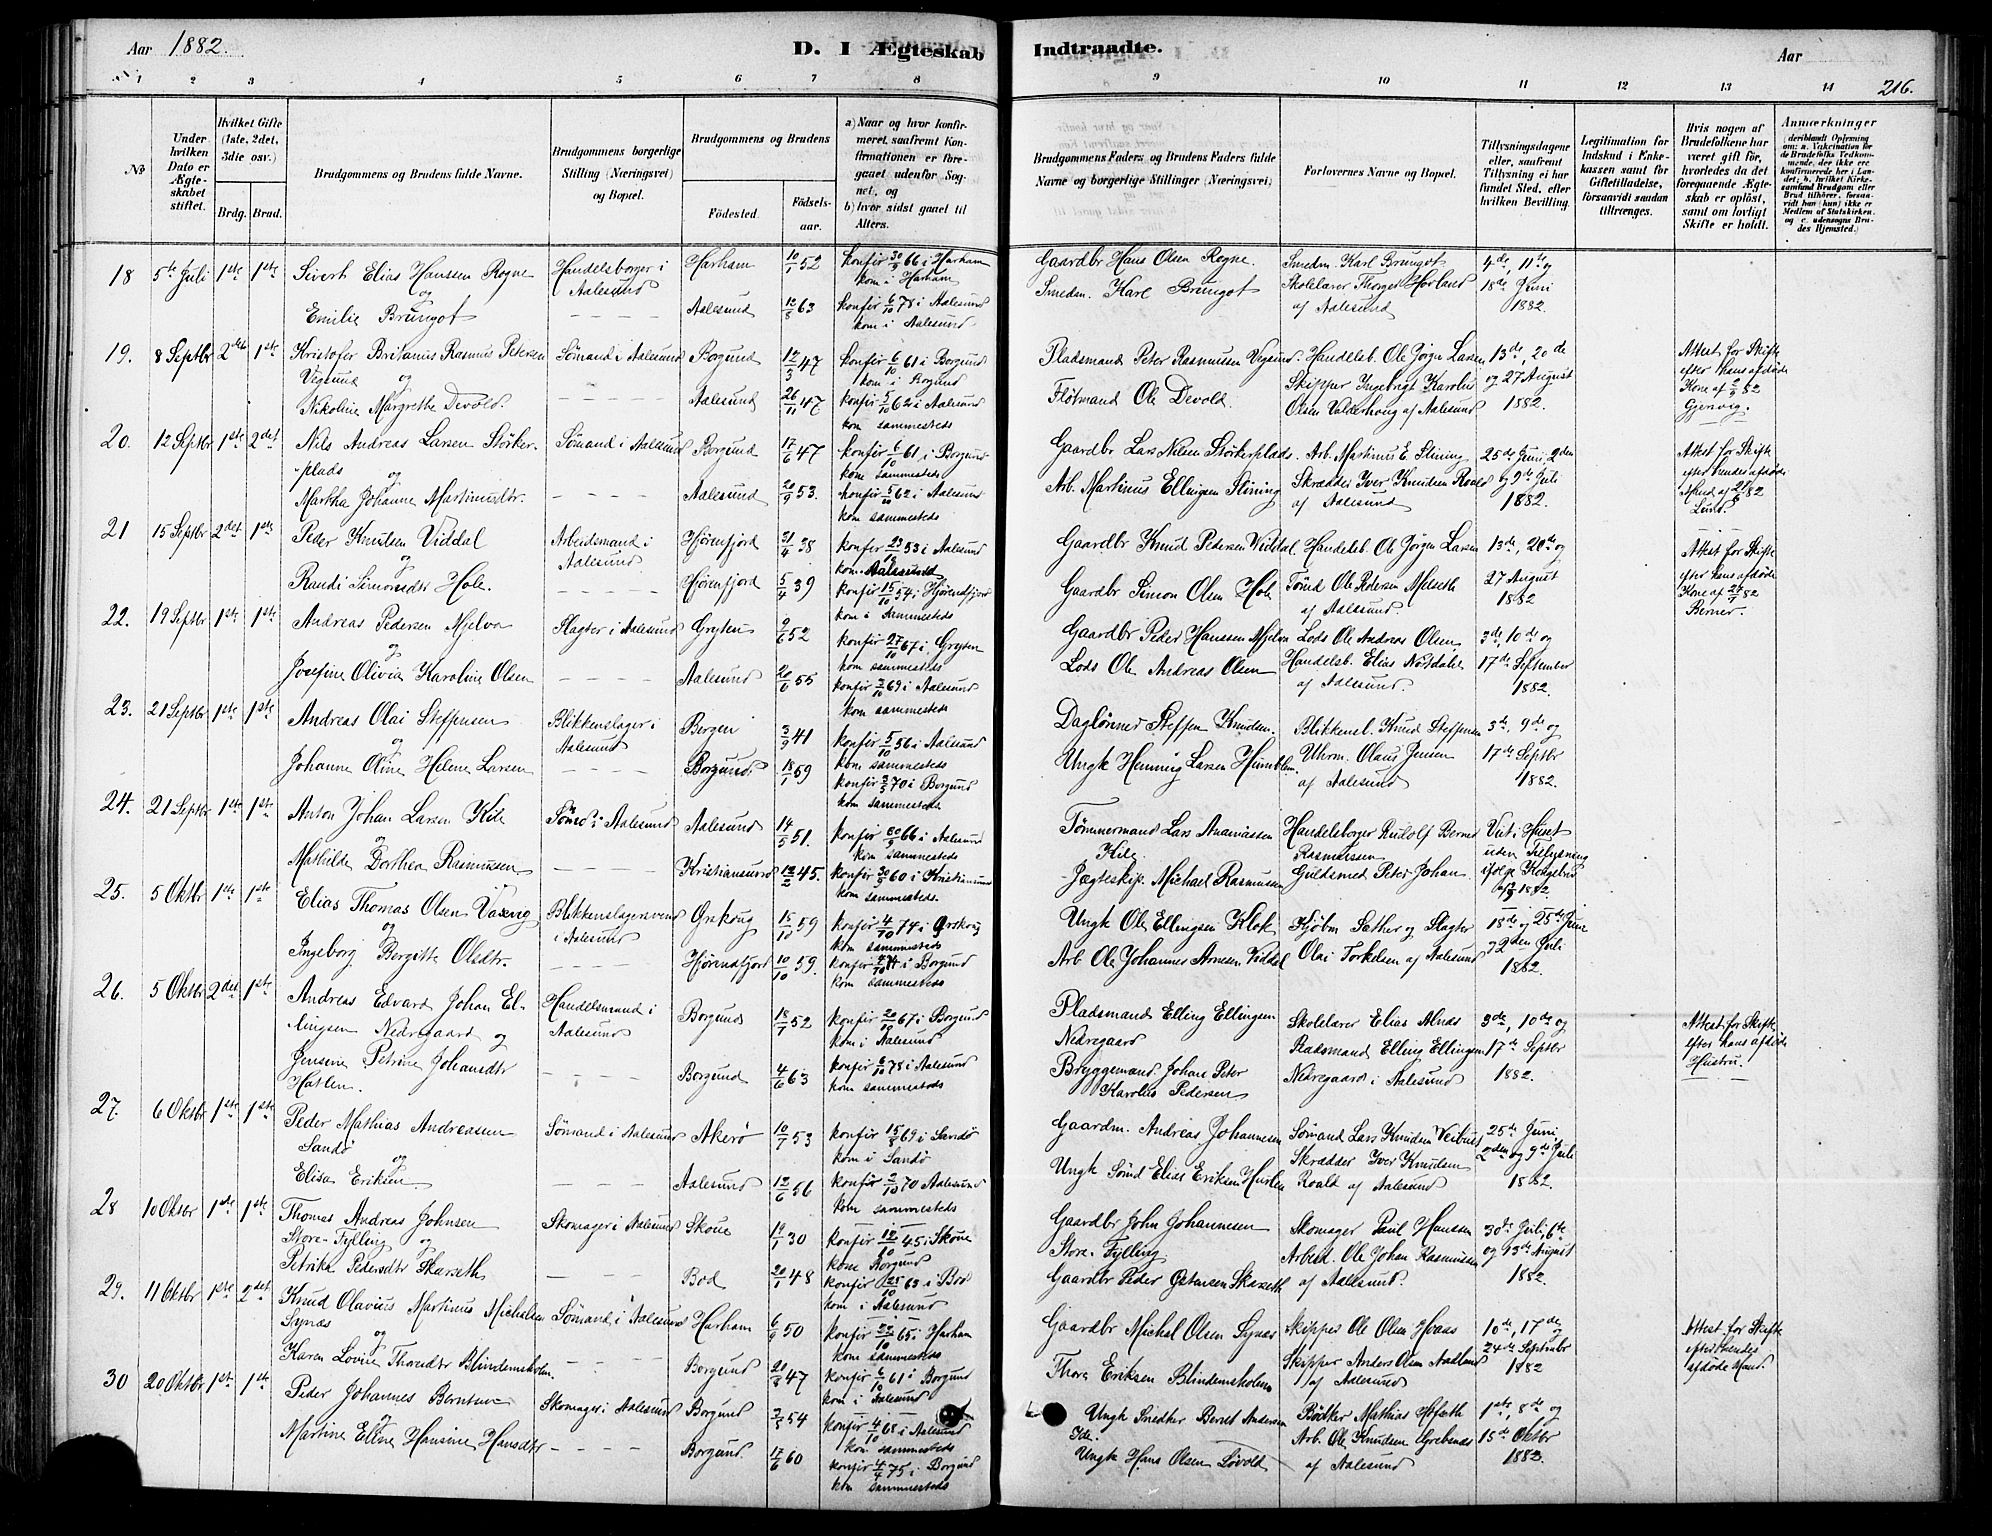 Aar 1882.
D. I Ægteskab Indtraadte.
Aar
216.
1 2 3 4 5 6 7 8 9 10 11 12 13 14
No
Under hvilken Dato er Ægteskabet stiftet.
Hvilket Gifte (1ste, 2det, 3die osv.)
Brdg. Brud.
Brudgommens og Brudens fulde Navne.
Brudgommens borgerlige Stilling (Næringsvei) og Bopæl.
Brudgommens og Brudens
Fødested. Fødselsaar.
a) Naar og hvor konfirmeret, saafremt Konfirmationen er foregaaet udenfor Sognet, og
b) hvor sidst gaaet til Alters.
Brudgommens Faders og Brudens Faders fulde Navne og borgerlige Stillinger (Næringsvei)
Forlovernes Navne og Bopæl.
Tillysningsdagene eller, saafremt Tillysning ei har fundet Sted, efter hvilken Bevilling.
Legitimation for Indskud i Enkekassen samt for Giftetilladelse, forsaavidt saadan tiltrænges.
Hvis nogen af Brudefolkene har været gift før, hvorledes da det foregaaende Ægteskab er opløst, samt om lovligt Skifte er holdt.
Anmærkninger
18 5te Juli 1ste 1ste Sivert Elias Hanssen Rogne Handelsborger i Harham 10/1 52 konfir 30/9 66 i Harham Gaardbr Hans Olsen Rogne. Smedm. Karl Brungot 4de, 11te og
og Aalesund kom i Harham Skolelærer Thorger Hovland 18de Juni
Emilie Brungot — — — — Aalesund 12/8 63 konfir 6/10 78 i Aalesund Smedm. Karl Brungot af Aalesund 1882.
kom i Aalesund
19. 8 Septbr 2det 1ste Kristofer Britanus Rasmus Petersen Sømand i Aalesund Borgund 12/3 47 konfir 6/10 61 i Borgund Pladsmand Peter Rasmussen Vegsund. Handelsb. Ole Jørgen Larsen 13de, 20de Attest for Skifte
Vegsund og kom i Borgund Skipper Ingebrigt Karolus og 27 August efter hans afdøde
Nikoline Margrethe Devold. — — — Aalesund 26/11 47 konfir 5/10 62 i Aalesund Fløtmand Ole Devold. Olsen Valderhoug af Aalesund 1882. Kone af
kom sammesteds Gjervig.
20. 12 Septbr 1ste 2det Nils Andreas Larsen Størker- Sømand i Aalesund Borgund 17/6 47 konfir 6/10 61 i Borgund Gaardbr Lars Nilsen Størkerplads. Arb. Martinus E. Slining 25de Juni, 2den Attest for Skifte
plads og kom sammesteds Skrædder Iver Knudsen Roald og 9de Juli efter hendes afdøde
Martha Johanne Martinusdtr. — — — — Aalesund 20/9 53. konfir 5/10 62 i Aalesund Arb. Martinus Ellingsen Slining af Aalesund 1882. Mand af
kom sammesteds Lund.
21 15 Septbr 2det 1ste Peder Knudsen Viddal Arbeidsmand i Hjørenfjord 21/4 38 konfir 23/10 53 i Aalesund Gaardbr Knud Pedersen Viddal Handelsb. Ole Jørgen Larsen 13de, 20de og Attest for Skifte
og Aalesund kom Aalesund Tømd Ole Pedersen Melseth 27 August efter hans afdøde
Randi Simonsdtr Hole. — — — — Hjørenfjord 5/4 39 konfir 15/10 54 i Hjørendfjord Gaardbr Simon Olsen Hole af Aalesund 1882 Kone af
kom i Sammesteds Berner.
22. 19 Septbr 1ste 1ste Andreas Pedersen Mjelva Slagter i Aalesund Gryten 9/6 52 konfir 27/10 67 i Gryten Gaardbr Peder Hanssen Mjelva Lods Ole Andreas Olsen 3de, 10de og
og kom sammesteds Handelsb. Elias Notdale 17de September
Josefine Olivia Karoline Olsen — — — Aalesund 20/6 55 konfir 3/10 69 i Aalesund Lods Ole Andreas Olsen af Aalesund. 1882.
kom sammesteds
23. 21 Septbr 1ste 1ste Andreas Olai Steffensen Blikkenslager i Bergen 3/9 41 konfir 5/10 56 i Aalesund Daglønner Steffen Knudsen. Blikkensl. Knud Steffensen 3de, 9de og
og Aalesund kom sammesteds Uhrm. Olaus Jensen 17de Septbr
Johanne Oline Helene Larsen — — — — Borgund. 18/1 59 konfir 70 i Borgund Ungk Henning Larsen Humblen. af Aalesund 1882.
kom sammesteds
24. 21 Septbr 1ste 1ste Anton Johan Larsen Kile Sømd i Aalesund Aalesund 14/5 51. konfir 30/9 66 i Aalesund Tømmermand Lars Ananiassen Handelsborger Rudolf Berner Viet i Huset
og kom sammesteds Kile. Rasmussen uden Tillysning
Mathilde Dorthea Rasmussen — — — Kristiansund 12/2 45. konfir 30/9 60 i Kristiansund Jægteskip. Michael Rasmussen Guldsmed Peter Johan ifølge Kongebrev
kom sammesteds. 1882.
25. 5 Oktbr 1ste 1ste Elias Thomas Olsen Vasvig Blikkenslagersvend Ørskoug 15/10 59 konfir 4/10 74 i Ørskoug Ungk Ole Ellingsen Klok Kjøbm Sæther og Slagter 18de og 25de Juni
og i Aalesund kom sammesteds Olai Torkelsen af Aalesund 2den Juli
Ingeborg Bergitte Olsdtr. — — — Hjørendfjord 10/10 59. konfir 4/10 74 i Borgund Arb Ole Johannes Arnesen Viddal 1882.
kom sammesteds
26. 5 Oktbr 2det 1ste Andreas Edvard Johan El- Handelsmand i Borgund 18/7 52 konfir 20/10 67 i Borgund Pladsmand Elling Ellingsen Skolelærer Elias Alnæs 3de, 10de og Attest for Skifte
lingsen Nedregaard og Aalesund kom i Aalesund Nedregaard Pladsmand Elling Ellingsen 17de Septbr efter hans afdøde
Jensine Petrine Johansdtr — — — Borgund 4/6 63 konfir 6/10 78 i Aalesund Bryggemand Johan Peter Nedregaard i Aalesund 1882. Hustru.
Hatlen. kom sammesteds Karolus Pedersen
27. 6 Oktbr 1ste 1ste Peder Mathias Andreassen Sømand i Aalesund Akerø 10/7 53 konfir 15/8 69 i Sandø Gaardm. Andreas Johannesen Sømand Lars Knudsen Veibust 25de Juni
Sandø og kom i Sandø Skrædder Iver Knudsen 2den og 9de Juli
Elisa Eriksen — — — Aalesund 12/6 56 konfir 2/10 70 Aalesund Ungk Sømd Elias Eriksen Hurlen Roald af Aalesund 1882.
kom sammesteds
28 10 Oktbr 1ste 1ste Thomas Andreas Johnsen Skomager i Aalesund Skoue 19/1 30 konfir 12/10 45 i Skoue Gaardbr John Johannesen Skomager Paul Hanssen 30de Juli, 6te
Store-Fylling og kom Borgund Store-Fylling Arbeid. Ole Johan Rasmussen og 13de August
Petrika Pedersdtr Skarseth — — — Bod 20/1 48 konfir 25/10 63 i Bod Gaardbr Peder Østensen Skarseth af Aalesund. 1882.
kom i Aalesund
29. 11 Oktbr 1ste 2det Knud Olavius Martinus Michalsen Sømand i Aalesund Harham 6/9 50 konfir 22/10 65 i Harham Gaardbr Michal Olsen Synæs Skipper Ole Olsen Hoaas 10de, 17de og Attest for Skifte
Synæs og kom sammesteds Skipper Anders Olsen Aadland 24de Septembr efter hendes
Karen Lovise Thoredtr Blindemsholm. — — — Borgund 20/8 47 konfir 6/10 61 i Borgund Thore Eriksen Blindemsholm af Aalesund 1882 afdøde Mand.
kom i Aalesund
30 20 Oktbr 1ste 1ste Peder Johannes Berntsen Skomager i Aalesund Borgund 54 konfir 4/10 68 i Aalesund Ungk Snedker Bernt Andersen Bødker Mathias Hofseth 1ste, 8de og
og kom sammesteds Ide. Arb. Ole Knudsen Grebstad 15de Oktbr
Martine Eline Hansine Hansdtr — — — Borgund. 17/6 60 konfir 4/4 75 i Borgund Ungk Hans Olsen Løvold af Aalesund 1882.
kom sammesteds